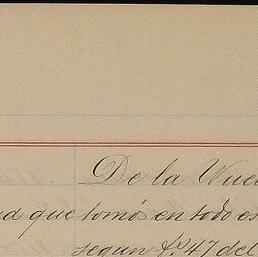 De la Vue
ud que tomó en todo es
segun fs. 47 del